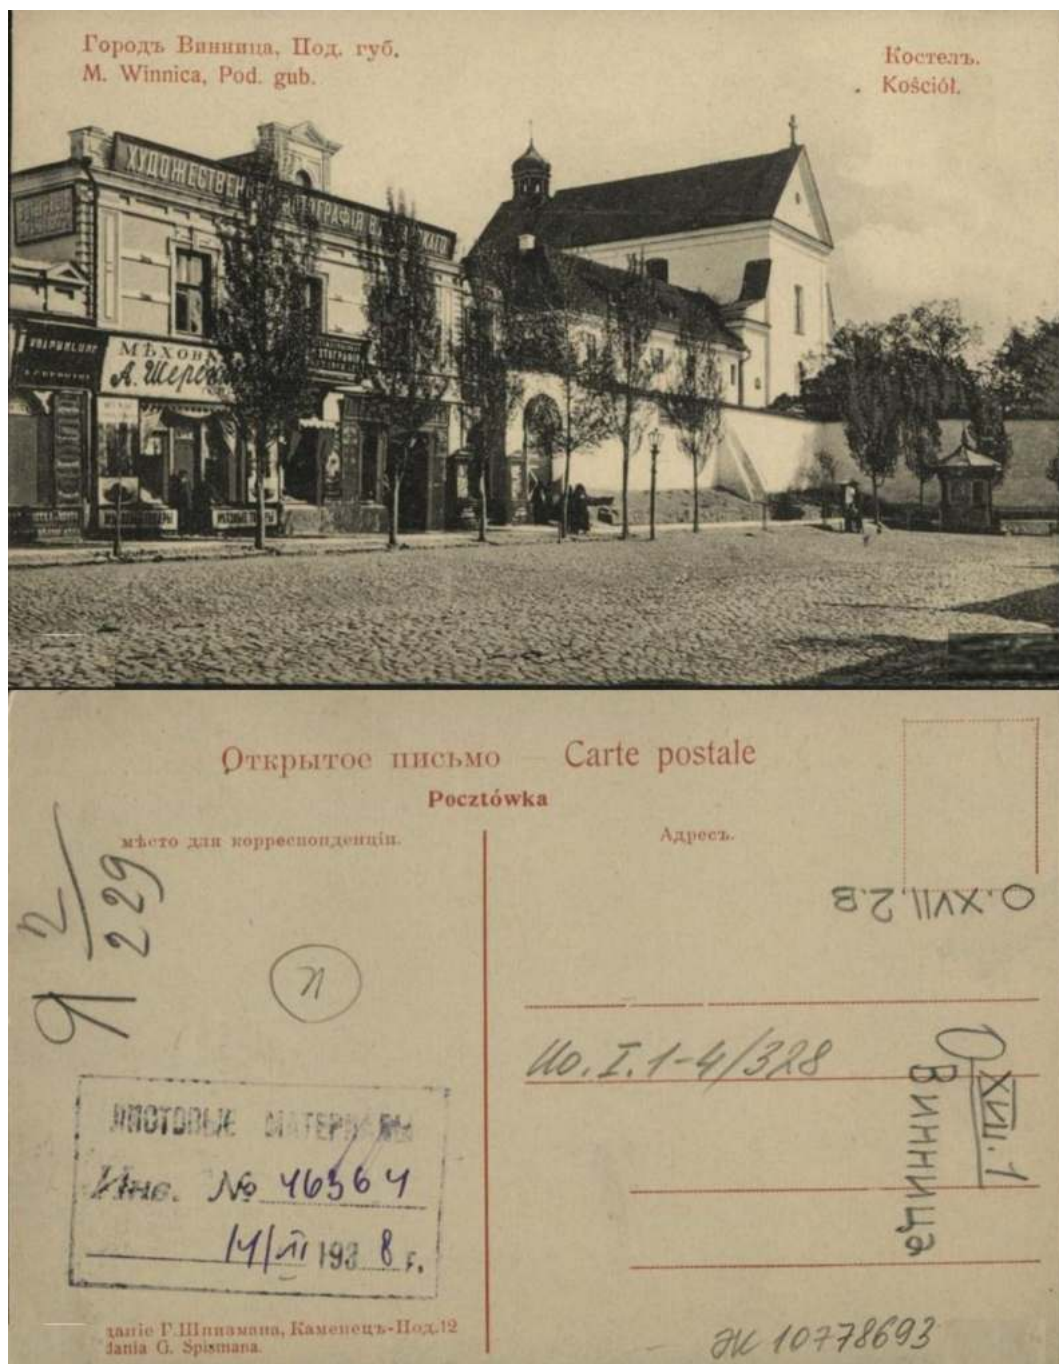 Городъ Винница, Под. губ.
M. Winnica, Pod. gub.
Костелъ.
Kościół.
ХУДОЖЕСТВЕН
ОТОГРАФІЯ
МѢХОВ
А. Шерб
Открытое письмо — Carte postale
Pocztówka
мѣсто для корреспонденціи.
Адресъ.
2/229
О.XVII.2.В
Ио.I.1-4/328
О XVII.1
Винница
ЛИСТОВЫЕ МАТЕРИАЛЫ
Инв. № 46364
14/VI 1938 г.
даніе Г. Шпизмана, Каменецъ-Под. 12
dania G. Spismana.
ЭК 10778693